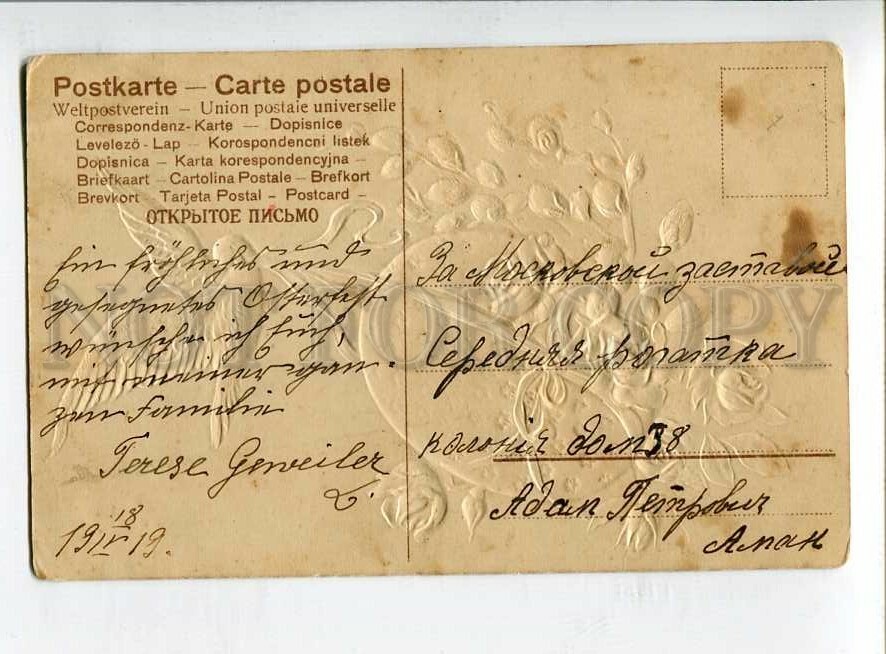 Postkarte — Carte postale
Weltpostverein — Union postale universelle
Correspondenz-Karte — Dopisnice
Levelező-Lap — Korospondencni listek
Dopisnica — Karta korespondencyjna —
Briefkaart — Cartolina Postale — Brefkort
Brevkort — Tarjeta Postal — Postcard —
ОТКРЫТОЕ ПИСЬМО
Ein fröhliches und
gesegnetes Osterfest
wünsche ich Euch,
mit meiner gan-
zen Familie
Terese Geweiler
L.
19 18/IV 19.
За Московской заставой
Середняя рогатка
колонія дом 38
Адам Петрович
Аман